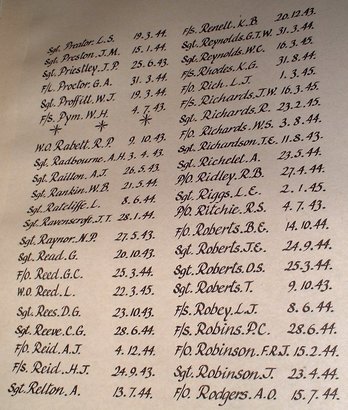 Sgt. Preator. L.S. 19.3.44.
Sgt. Preston. J.M. 15.1.44.
Sgt. Priestley. J.P. 25.6.43.
F/L. Proctor. G.A. 31.3.44.
Sgt. Proffitt. W.J. 19.3.44.
F/S. Pym. W.H. 4.7.43.
W.O. Rabett. R.P. 9.10.43.
Sgt. Radbourne. A.H. 3.4.43.
Sgt. Raillon. A.J. 26.5.43.
Sgt. Rankin. W.B. 21.5.44.
Sgt. Ratcliffe. L. 8.6.44.
Sgt. Ravenscroft. J.T. 28.1.44.
Sgt. Raynor. N.P. 27.5.43.
Sgt. Read. G. 20.10.43.
F/O. Reed. G.C. 25.3.44.
W.O. Reed. L. 22.3.45.
Sgt. Rees. D.G. 23.10.43.
Sgt. Reeve. C.G. 28.6.44.
F/O. Reid. A.J. 4.12.44.
F/S. Reid. H.J. 24.9.43.
Sgt. Relton. A. 13.7.44.
F/S. Renell. K.B. 20.12.43.
Sgt. Reynolds. G.T.W. 31.3.44.
Sgt. Reynolds. W.C. 16.3.45.
F/S. Rhodes. K.G. 31.8.44.
F/O. Rich. L.J. 1.3.45.
F/S. Richards. J.W. 16.3.45.
Sgt. Richards. R. 23.2.45.
F/O. Richards. W.S. 3.8.44.
Sgt. Richardson. J.E. 11.8.43.
Sgt. Richelet. A. 23.5.44.
P/O. Ridley. R.B. 27.4.44.
Sgt. Riggs. L.E. 2.1.45.
P/O. Ritchie. R.S. 4.7.43.
F/O. Roberts. B.E. 14.10.44.
Sgt. Roberts. J.E. 24.9.44.
Sgt. Roberts. O.S. 25.3.44.
Sgt. Roberts. T. 9.10.43.
F/S. Robey. L.J. 8.6.44.
F/S. Robins. P.C. 28.6.44.
F/O. Robinson. F.R.J. 15.2.44.
Sgt. Robinson. J. 23.4.44.
F/O. Rodgers. A.O. 15.7.44.